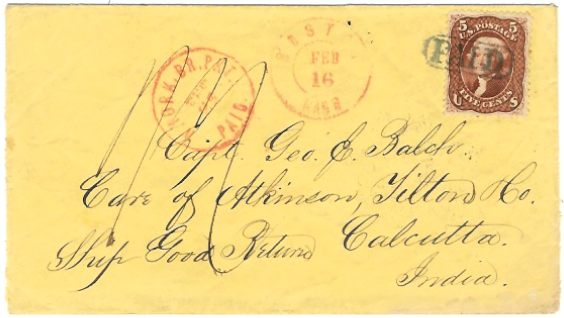 BOSTON
FEB
16
MASS
N.YORK.BR.PKT.
PAID
PAID
5 5
U.S.POSTAGE
FIVE CENTS
U S
Capt. Geo. E. Balch.
Care of Atkinson, Tilton & Co.
Ship Good Return
Calcutta.
India.